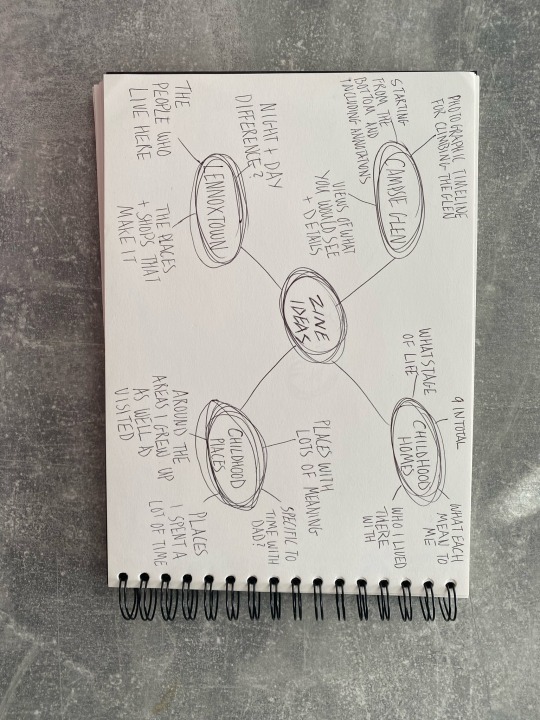 ZINE
IDEAS
CAMPSIE GLEN
PHOTOGRAPHIC TIMELINE
FOR CLIMBING THE GLEN
STARTING
FROM THE
BOTTOM AND
INCLUDING ANNOTATIONS
VIEWS OF WHAT
YOU WOULD SEE
+ DETAILS
CHILDHOOD
HOMES
WHAT STAGE
OF LIFE
9 IN TOTAL
WHAT EACH
MEAN TO
ME
WHO I LIVED
THERE
WITH
LENNOXTOWN
NIGHT + DAY
DIFFERENCE?
THE
PEOPLE WHO
LIVE HERE
THE PLACES
+ SHOPS THAT
MAKE IT
CHILDHOOD
PLACES
PLACES WITH
LOTS OF MEANING
SPECIFIC TO
TIME WITH
DAD?
AROUND THE
AREAS I GREW UP
AS WELL AS
VISITED
PLACES
I SPENT A
LOT OF TIME